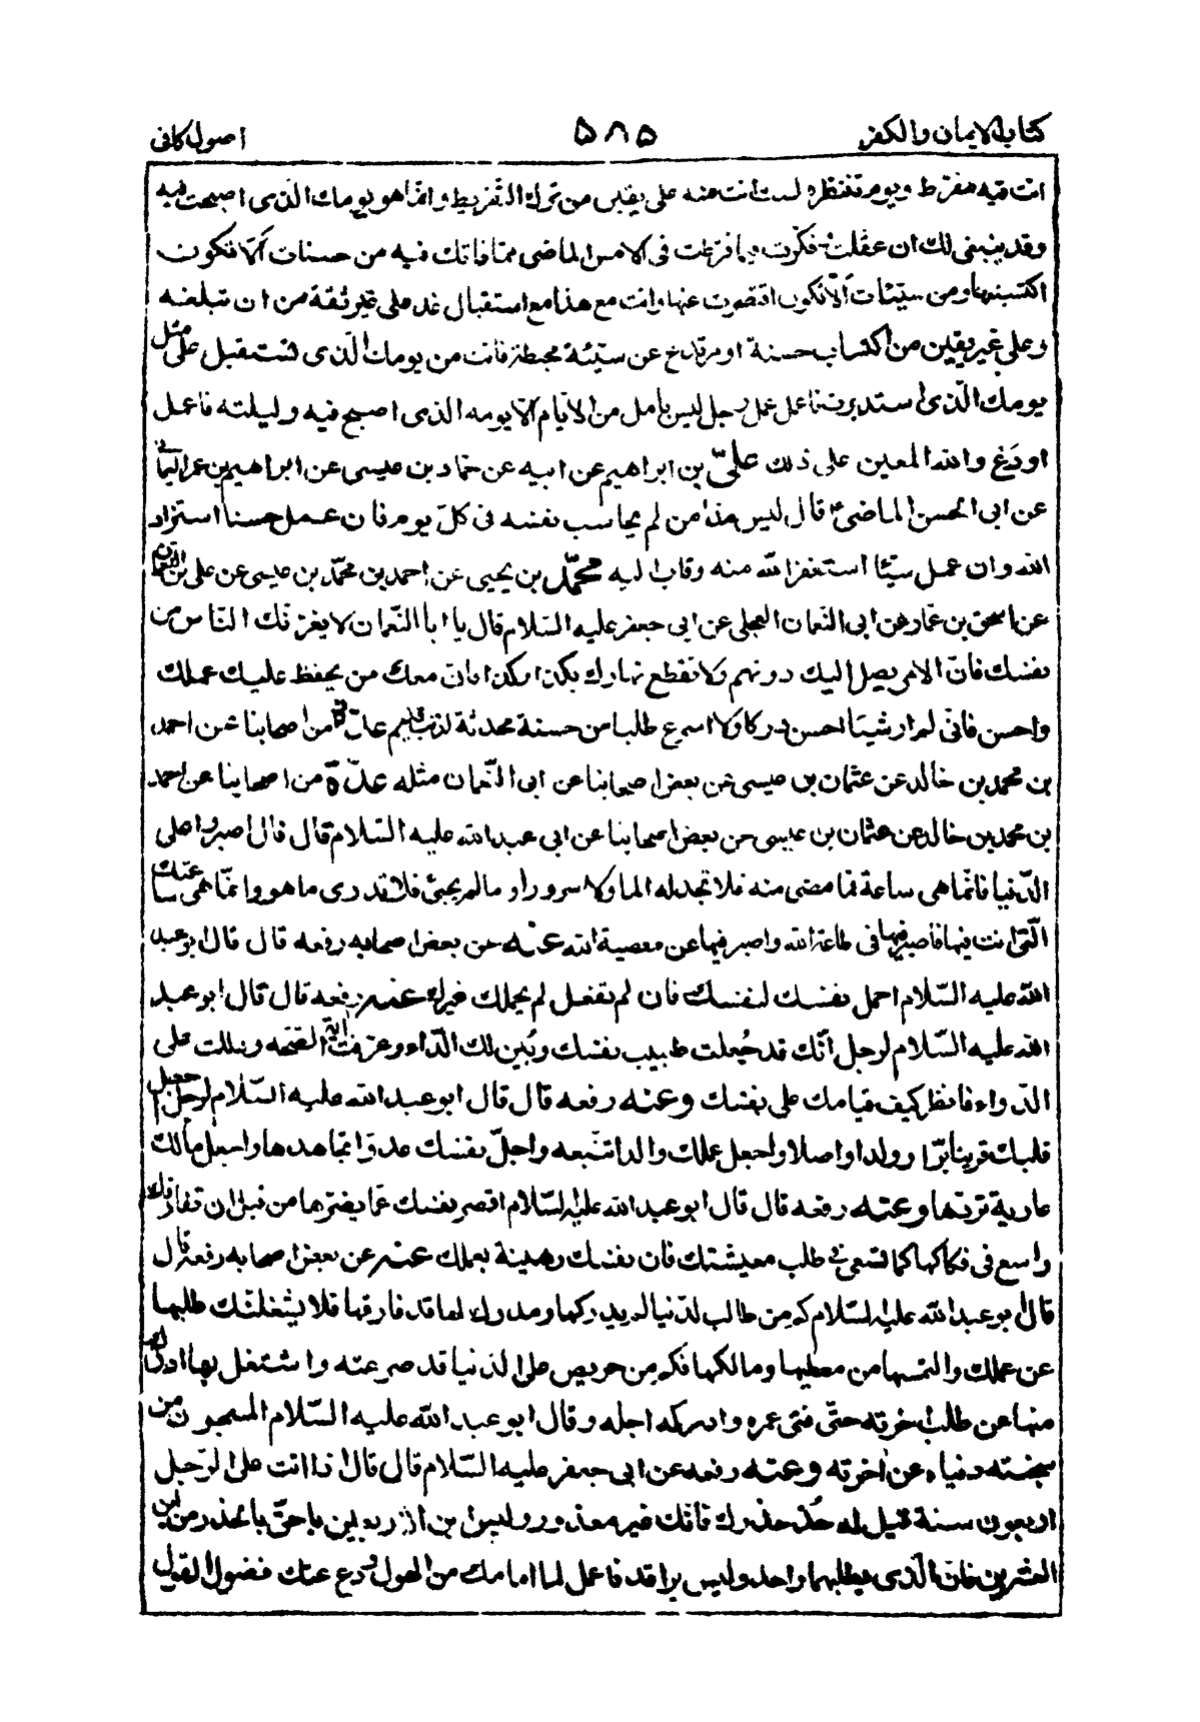 كتاب الايمان والكفر ۵۸۵ اصول كافى
انت فيه مفرّط ويوم تنتظره لست انت منه على يقين من ترك التّفريط وانّما هو يومك الّذى اصبحت فيه
وقد ينبغى لك ان عقلت وفكّرت فيما فرّطت فى الامس الماضى ممّا فاتك فيه من حسنات ألّا تكون
اكتسبتها ومن سيّئات ألّا تكون اقتصرت عنها وانت مع هذا مع استقبال غد على غير ثقة من ان تبلغه
وعلى غير يقين من اكتساب حسنة او مرتدع عن سيّئة محبطة فانت من يومك الّذى تستقبل على مثل
يومك الّذى استدبرت فاعمل عمل رجل ليس يامل من الايّام الّا يومه الذى اصبح فيه وليلته فاعمل
او دَع والله المعين على ذلك علىّ بن ابراهيم عن ابيه عن حمّاد بن عيسى عن ابراهيم بن عمر اليمانى
عن ابى الحسن الماضىؑ قال ليس منّا من لم يحاسب نفسه فى كلّ يوم فان عمل حسنا استزاد
الله وان عمل سيّئا استغفر الله منه وتاب اليه محمّد بن يحيى عن احمد بن محمّد بن عيسى عن على بن النعمان
عن اسحق بن عمّار عن ابى النّعمان العجلى عن ابى جعفر عليه السّلام قال يا ابا النّعمان لا يغرّنّك النّاس من
نفسك فانّ الامر يصل اليك دونهم ولا تقطع نهارك بكذا وكذا فان معك من يحفظ عليك عملك
واحسن فانّى لم ار شيئا احسن دركا ولا اسرع طلبا من حسنة محدثة لذنب قديم عدّة من اصحابنا عن احمد
بن محمد بن خالد عن عثمان بن عيسى عن بعض اصحابنا عن ابى النّعمان مثله عدّة من اصحابنا عن احمد
بن محمد بن خالد عن عثمان بن عيسى عن بعض اصحابنا عن ابى عبد الله عليه السّلام قال قال اصبروا على
الدّنيا فانّما هى ساعة فما مضى منه فلا تجد له الما ولا سرورا وما لم يجئ فلا تدرى ما هو وانّما هى ساعتك
الّتى انت فيها فاصبر فيها فى طاعة الله واصبر فيها عن معصية الله عنه عن بعض اصحابه رفعه قال قال ابو عبد
الله عليه السّلام احمل نفسك لنفسك فان لم تفعل لم يحملك غيرك عنه رفعه قال قال ابو عبد
الله عليه السّلام لرجل انّك قد جُعلت طبيب نفسك وبُيّن لك الدّاء وعرّفت اية الصّحّه ودللت على
الدّواء فانظر كيف قيامك على نفسك وعنه رفعه قال قال ابو عبد الله عليه السّلام لرجل اجعل
قلبك قرينا برّا وولدا واصلا واجعل عملك والدا تتّبعه واجعل نفسك عدوّا تجاهدها واجعل مالك
عارية تردّها وعنه رفعه قال قال ابو عبد الله عليه السّلام اقصر نفسك عمّا يضرّها من قبل ان تفارقك
واسع فى فكاكها كما تسعى فى طلب معيشتك فان نفسك رهينة بعملك عنه عن بعض اصحابه رفعه قال
قال ابو عبد الله عليه السّلام كم من طالب لدّنيا لم يدركها ومدرك لها قد فارقها فلا يشغلنّك طلبها
عن عملك والتمسها من معطيها ومالكها فكم من حريص على الدّنيا قد صرعته واشتغل بها ادرك
منها عن طلب اخرته حتّى فنى عمره وادركه اجله وقال ابو عبد الله عليه السّلام المسجون من
سجنته دنياه عن اخرته وعنه رفعه عن ابى جعفر عليه السّلام قال قال اذا اتت على الرّجل
اربعون سنة قيل له خذ حذرك فانّك غير معذور وليس ابن الاربعين باحقّ بالحذر من ابن
العشرين فانّ الّذى يطلبهما واحد وليس براقد فاعمل لما امامك من الهول ودع عنك فضول القول